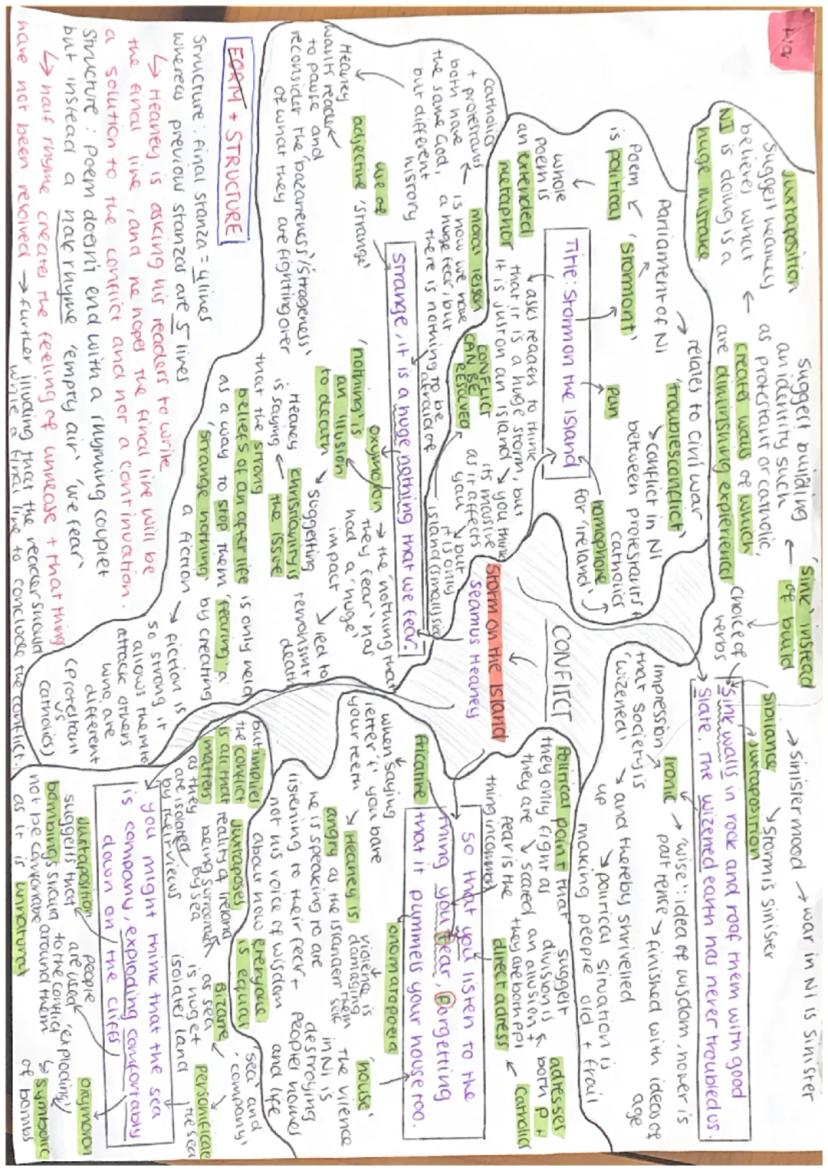 War
CONFLICT
STORM ON THE ISLAND
SEAMUS HEANEY
Juxtaposition
suggest heaney
believes what
NI is doing is a
huge mistake
suggest building
an identity such
as protestant or catholic,
creates walls of which
are diminishing experience
'sink' instead
of build
choice of
verbs
sibilance
juxtaposition
→ sinister mood → war in NI is sinister
storm is sinister
Sink walls in rock and roof them with good
slate. The wizened earth has never troubled us.
ironic → 'wize': idea of wisdom, however is
past tense → finished with ideas of
age
impression
that society is
'wizened'
→ and thereby shrivelled
up
→ political situation is
making people old + frail
Poem
is political
'stormont'
Parliament of NI
→ relates to civil war
'troubles conflict'
→ conflict in NI
between protestants +
catholics
pun
homophone
for 'ireland'
Title: Storm on the Island
whole
poem is
an extended
metaphor
→ asks readers to think
that it is a huge storm, but
it is just on an island
→ you think
its massive
as it affects
you, but
it is only
island (small) size
catholics
+ protestants
both have
the same God,
but different
history
moral lesson
is now we have
a huge fear, but
there is nothing to be
afraid of
CONFLICT
CAN BE
RESOLVED
strange, it is a huge nothing that we fear.
use of
adjective 'strange'
Heaney
wants reader
to pause and
reconsider the 'bazareness'/'strageness'
of what they are fighting over
oxymoron
→ the 'nothing that
they fear' has
had a 'huge'
impact
→ led to
death
'nothing' is
an illusion
to death
→ suggesting
Christianity is
the issue
Heaney
is saying
that the strong
beliefs of an after life
is only held
as a way to stop them 'fearing' a
'strange nothing' by creating
a fiction
→ fiction is
so strong it
allows them to
attack others
who are
different
(protestant
vs
catholics)
FORM + STRUCTURE
Structure: final stanza = 4 lines
whereas previous stanzas are 5 lines
↳ Heaney is asking his readers to write
the final line, and he hopes the final line will be
a solution to the conflict and not a continuation.
Structure: poem doesn't end with a rhyming couplet
but instead a half rhyme 'empty air' 'we fear'
↳ half rhyme creates the feeling of unrease + that things
have not been resolved → further illuding that the reader should
write a final line to conclude the conflict.
Political point that
they only fight as
they are
→ scared
fear is the
thing in common
suggest
division is
an illusion +
they are both ppl
adresses
both P +
Catholics
direct adress
So that you listen to the
thing you fear, forgetting
that it pummels your house too.
fricative
when saying
letter 'f' you bare
your teeth
→ Heaney is
angry as the islander
he is speaking to are
listening to their fear +
not his voice of wisdom
violence is
damaging
them
self
onomatopoeia
'house'
the vilence
in NI is
destroying
peoples homes
and life
but implies
the conflict
is all that
matters
as they
are isolated
by their views
juxtaposes
reality of ireland
being surrounded
by sea
about how everyone
is equal
Bizare
as sea
is huge +
isolates land
'sea' and
'company'
personificate
the sea
you might think that the sea
is company, exploding comfortably
down on the cliffs
juxtaposition
suggests that
bombings should
not be comfortable
as it is unnatural
people
are used
to the conflict
around them
oxymoron
'exploding'
↳ symbolic
of bombs